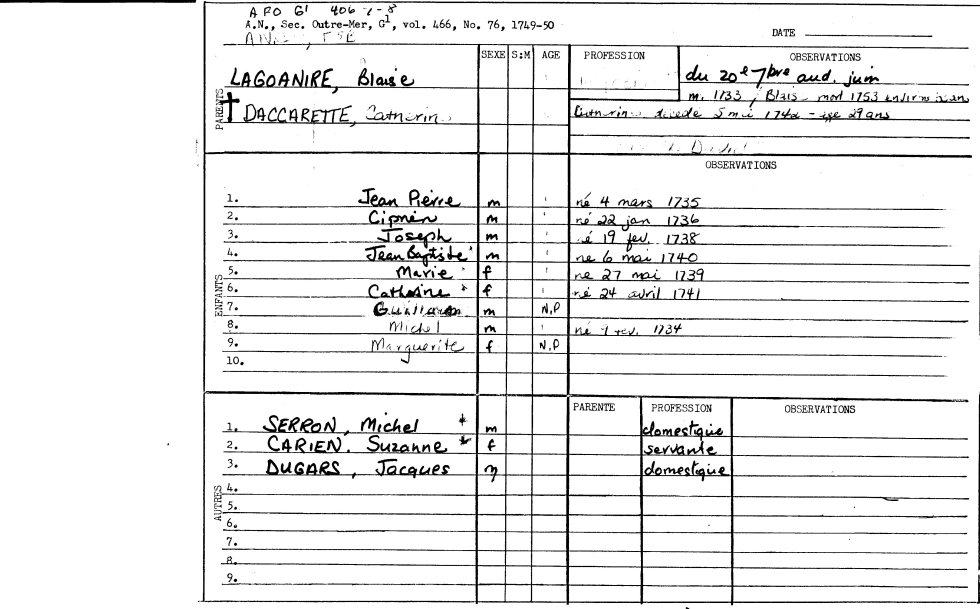 AFO G1 406-7-8
A.N., Sec. Outre-Mer, G1, vol. 466, No. 76, 1749-50
DATE
SEXE S:M AGE PROFESSION OBSERVATIONS
PARENTS
LAGOANIRE, Blaise du 20e 7bre aud. juin
m. 1733, Blais mort 1753
† DACCARETTE, Catherine Catherine decede 5 mai 1742 - age 29 ans
OBSERVATIONS
ENFANTS
1. Jean Pierre m né 4 mars 1735
2. Ciprien m né 22 jan 1736
3. Joseph m né 19 fev. 1738
4. Jean Baptiste m ne 6 mai 1740
5. Marie f ne 27 mai 1739
6. Catherine * f né 24 avril 1741
7. m N,P
8. Michel m né 1 fev. 1734
9. Marguerite f N,P
10.
PARENTE PROFESSION OBSERVATIONS
AUTRES
1. SERRON, Michel * m domestique
2. CARIEN. Suzanne * f servante
3. DUGARS, Jacques m domestique
4.
5.
6.
7.
8.
9.